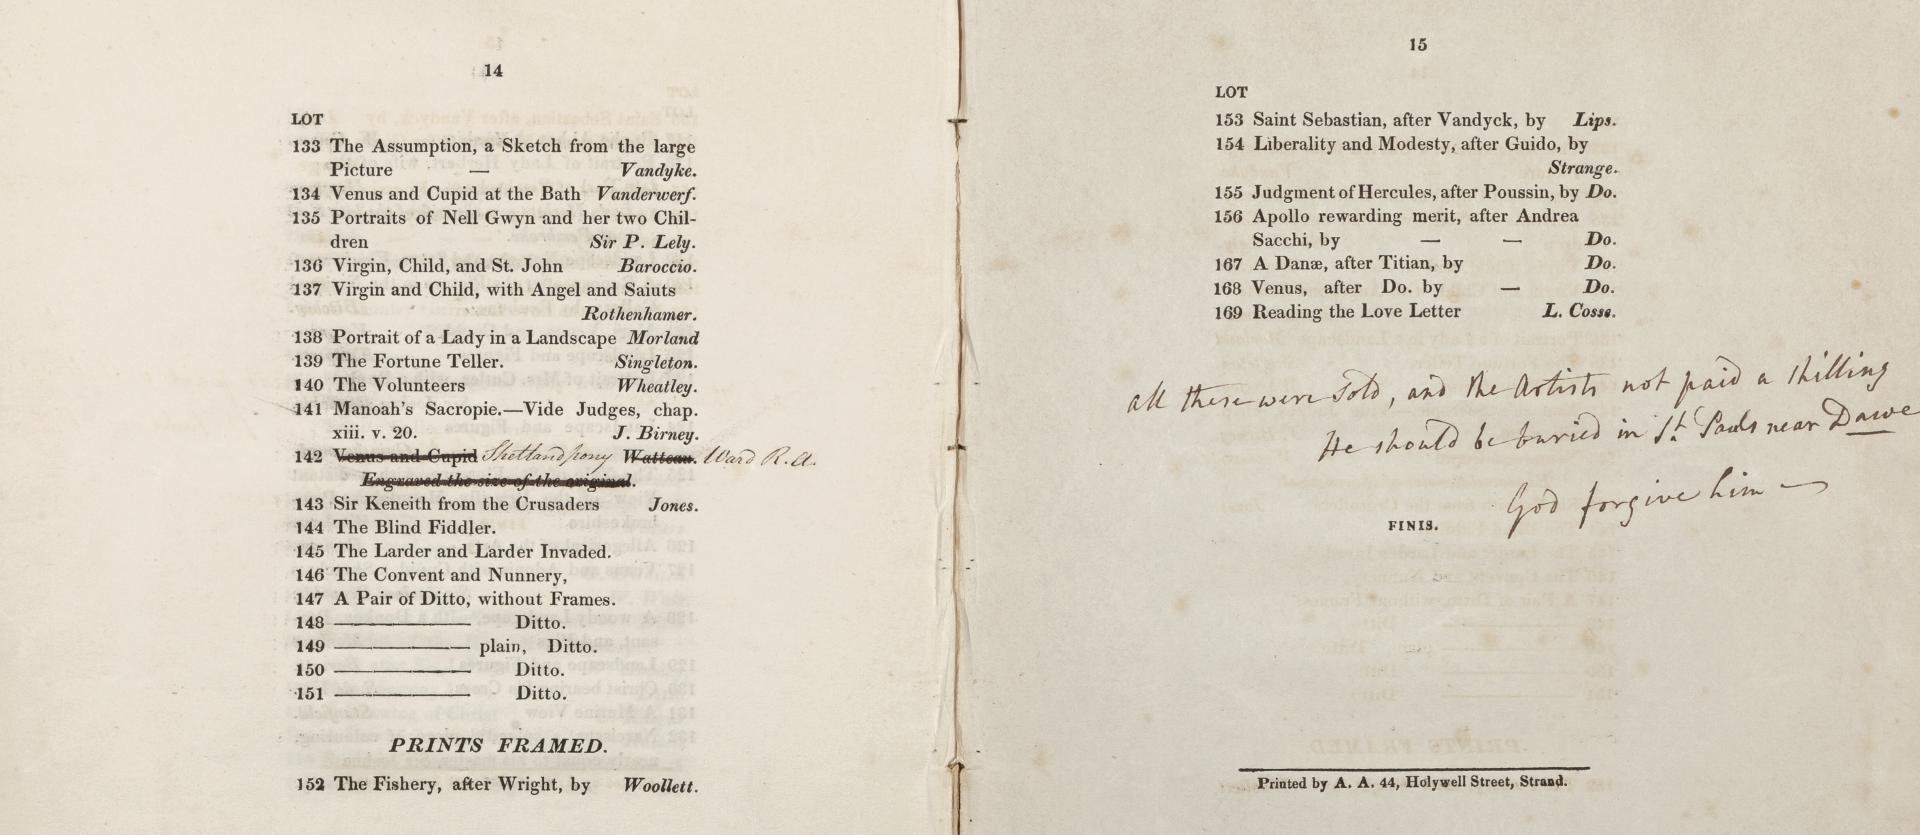 14
LOT
133 The Assumption, a Sketch from the large
Picture — Vandyke.
134 Venus and Cupid at the Bath Vanderwerf.
135 Portraits of Nell Gwyn and her two Chil-
dren Sir P. Lely.
136 Virgin, Child, and St. John Baroccio.
137 Virgin and Child, with Angel and Saiuts
Rothenhamer.
138 Portrait of a Lady in a Landscape Morland
139 The Fortune Teller. Singleton.
140 The Volunteers Wheatley.
141 Manoah's Sacropie.—Vide Judges, chap.
xiii. v. 20. J. Birney.
142 Venus and Cupid Shetland pony Watteau. Ward R.A.
Engraved the size of the original.
143 Sir Keneith from the Crusaders Jones.
144 The Blind Fiddler.
145 The Larder and Larder Invaded.
146 The Convent and Nunnery,
147 A Pair of Ditto, without Frames.
148 ——— Ditto.
149 ——— plain, Ditto.
150 ——— Ditto.
151 ——— Ditto.
PRINTS FRAMED.
152 The Fishery, after Wright, by Woollett.
15
LOT
153 Saint Sebastian, after Vandyck, by Lips.
154 Liberality and Modesty, after Guido, by
Strange.
155 Judgment of Hercules, after Poussin, by Do.
156 Apollo rewarding merit, after Andrea
Sacchi, by — — Do.
167 A Danæ, after Titian, by Do.
168 Venus, after Do. by — Do.
169 Reading the Love Letter L. Cosse.
all these were Sold, and the Artists not paid a shilling
He should be buried in St. Pauls near Dawe
God forgive him —
FINIS.
Printed by A. A. 44, Holywell Street, Strand.